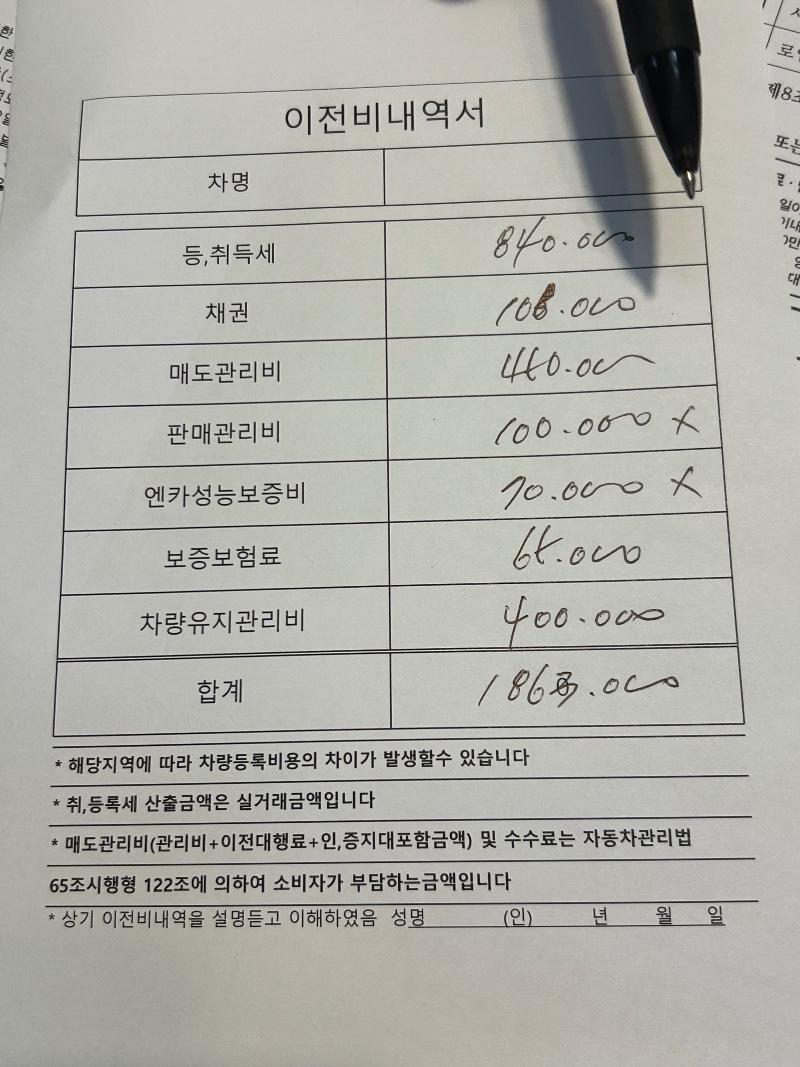 이전비내역서
차명
등,취득세 840.000
채권 108.000
매도관리비 440.000
판매관리비 100.000 X
엔카성능보증비 70.000 X
보증보험료 65.000
차량유지관리비 400.000
합계
* 해당지역에 따라 차량등록비용의 차이가 발생할수 있습니다
* 취,등록세 산출금액은 실거래금액입니다
* 매도관리비(관리비+이전대행료+인,증지대포함금액) 및 수수료는 자동차관리법
65조시행형 122조에 의하여 소비자가 부담하는금액입니다
* 상기 이전비내역을 설명듣고 이해하였음 성명 (인) 년 월 일
제8조
또는